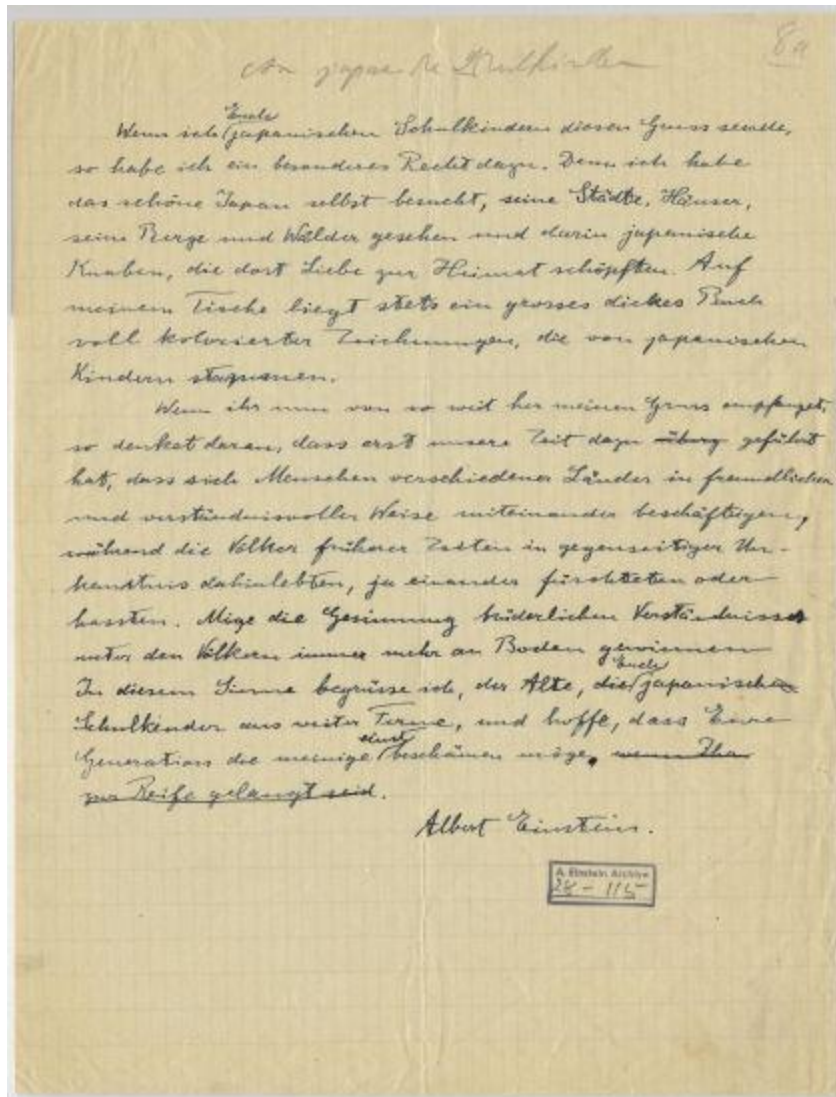 An japanische Schulkinder
8a
Wenn ich Euch japanischen Schulkindern diesen Gruss sende,
so habe ich ein besonderes Recht dazu. Denn ich habe
das schöne Japan selbst besucht, seine Städte, Häuser,
seine Berge und Wälder gesehen und darin japanische
Knaben, die dort Liebe zur Heimat schöpften. Auf
meinem Tische liegt stets ein grosses dickes Buch
voll kolorierter Zeichnungen, die von japanischen
Kindern stammen.
Wenn ihr nun von so weit her meinen Gruss empfanget,
so denket daran, dass erst unsere Zeit dazu geführt
hat, dass sich Menschen verschiedener Länder in freundlicher
und verständnisvoller Weise miteinander beschäftigen,
während die Völker früherer Zeiten in gegenseitiger Un-
kenntnis dahinlebten, ja einander fürchteten oder
hassten. Möge die Gesinnung brüderlichen Verständnisses
unter den Völkern immer mehr an Boden gewinnen
In diesem Sinne begrüsse ich, der Alte, Euch japanische
Schulkinder aus weiter Ferne, und hoffe, dass Eure
Generation die meinige einst beschämen möge, wenn Ihr
zur Reife gelangt seid.
Albert Einstein.
A. Einstein Archive
28-115